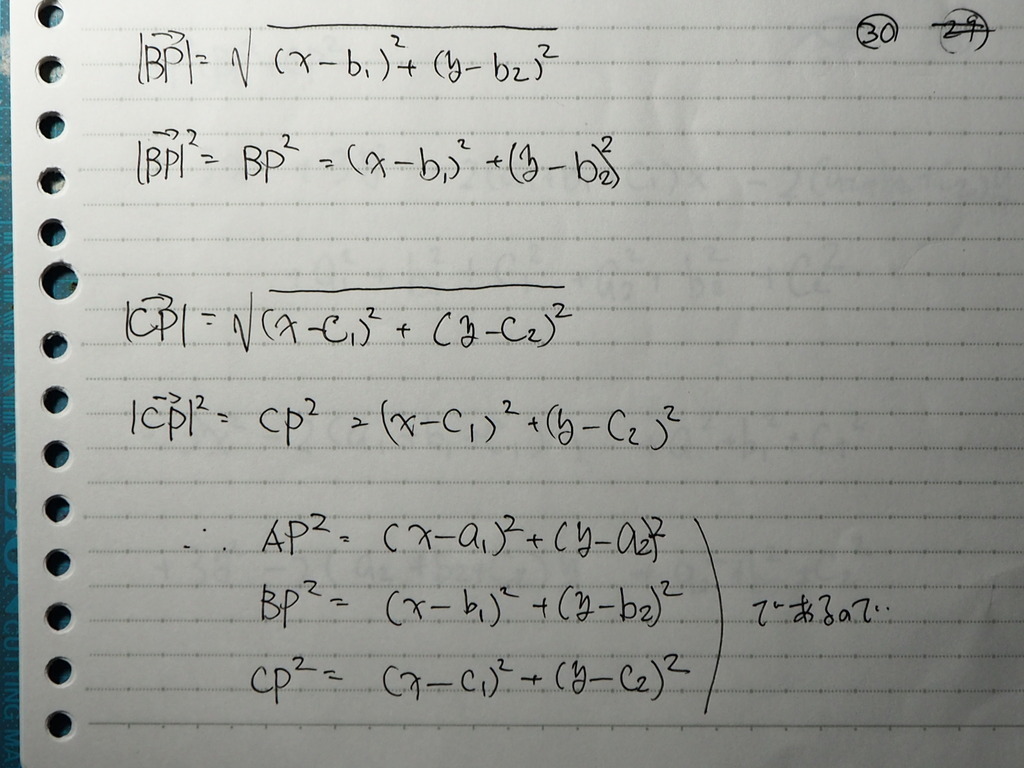 ㉚ 29
|BP→| = √((x-b₁)² + (y-b₂)²)
|BP→|² = BP² = (x-b₁)² + (y-b₂)²
|CP→| = √((x-C₁)² + (y-C₂)²)
|CP→|² = CP² = (x-C₁)² + (y-C₂)²
∴ AP² = (x-a₁)² + (y-a₂)²
BP² = (x-b₁)² + (y-b₂)² であるので‥
CP² = (x-C₁)² + (y-C₂)²